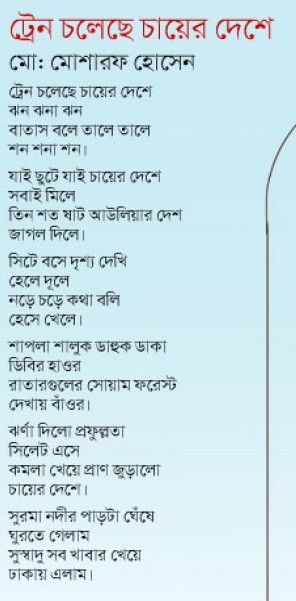 ট্রেন চলেছে চায়ের দেশে
মো: মোশারফ হোসেন
ট্রেন চলেছে চায়ের দেশে
ঝন ঝনা ঝন
বাতাস বলে তালে তালে
শন শনা শন।
যাই ছুটে যাই চায়ের দেশে
সবাই মিলে
তিন শত ষাট আউলিয়ার দেশ
জাগল দিলে।
সিটে বসে দৃশ্য দেখি
হেলে দূলে
নড়ে চড়ে কথা বলি
হেসে খেলে।
শাপলা শালুক ডাহুক ডাকা
ডিবির হাওর
রাতারগুলের সোয়াম ফরেস্ট
দেখায় বাঁওর।
ঝর্ণা দিলো প্রফুল্লতা
সিলেট এসে
কমলা খেয়ে প্রাণ জুড়ালো
চায়ের দেশে।
সুরমা নদীর পাড়টা ঘেঁষে
ঘুরতে গেলাম
সুস্বাদু সব খাবার খেয়ে
ঢাকায় এলাম।